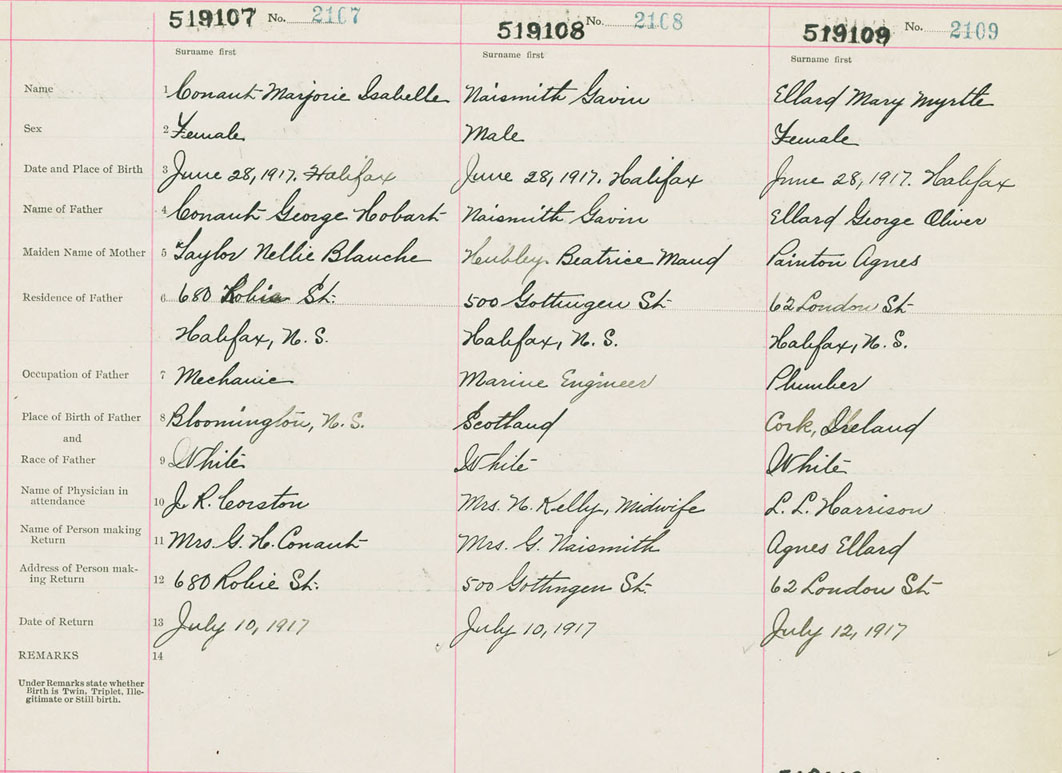 519107 No. 2107
519108 No. 2108
519109 No. 2109
Surname first
Surname first
Surname first
Name 1 Conant Marjorie Isabelle Naismith Gavin Ellard Mary Myrtle
Sex 2 Female Male Female
Date and Place of Birth 3 June 28, 1917. Halifax June 28, 1917. Halifax June 28, 1917. Halifax
Name of Father 4 Conant George Hobart Naismith Gavin Ellard George Oliver
Maiden Name of Mother 5 Taylor Nellie Blanche Heubley Beatrice Maud Painton Agnes
Residence of Father 6 680 Robie St. 500 Gottingen St. 62 London St.
Halifax, N. S. Halifax, N. S. Halifax, N. S.
Occupation of Father 7 Mechanic Marine Engineer Plumber
Place of Birth of Father 8 Bloomington, N. S. Scotland Cork, Ireland
and
Race of Father 9 White White White
Name of Physician in
attendance 10 J. R. Corston Mrs. N. Kelly, Midwife L. L. Harrison
Name of Person making
Return 11 Mrs. G. H. Conant Mrs. G. Naismith Agnes Ellard
Address of Person mak-
ing Return 12 680 Robie St. 500 Gottingen St. 62 London St.
Date of Return 13 July 10, 1917 July 10, 1917 July 12, 1917
REMARKS 14
Under Remarks state whether
Birth is Twin, Triplet, Ille-
gitimate or Still birth.